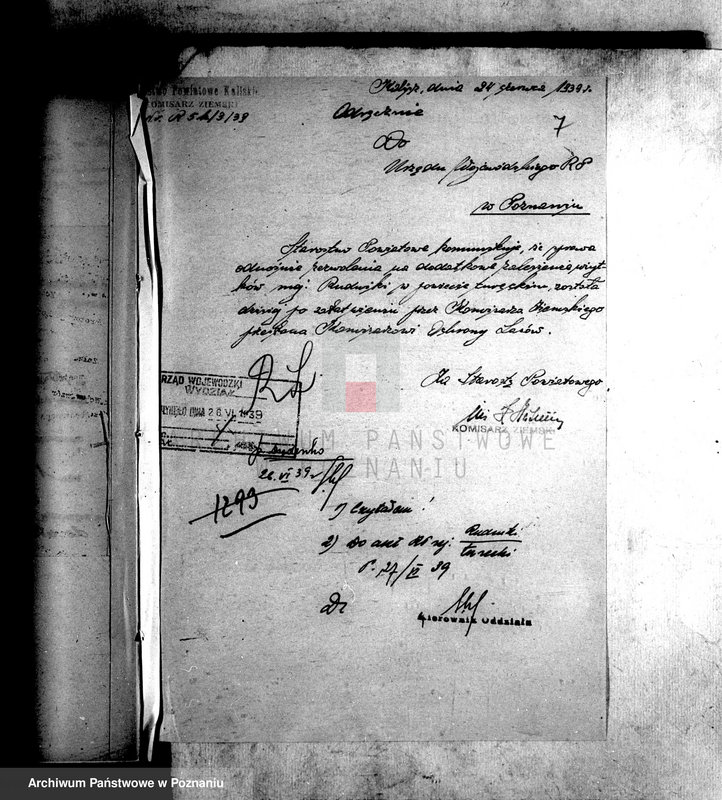 Powiatowe Kaliskie
KOMISARZ ZIEMSKI
Nr. R 5 b/3/39
Kalisz, dnia 24 czerwca 1939 r.
Odręcznie
7
Do
Urzędu Wojewódzkiego R8
w Poznaniu
Starostwo Powiatowe komunikuje, że sprawa
odnośnie zezwolenia na dodatkowe zalesienie
maj. Rudniki w powiecie tureckim, została
dzisiaj po załatwieniu przez Komisarza Ziemskiego
przesłana Komisarzowi Ochrony Lasów.
Za Starostę Powiatowego
KOMISARZ ZIEMSKI
URZĄD WOJEWÓDZKI
WYDZIAŁ
DNIA 26. VI. 1939
26. VI 39 r.
1293
1) Czytałem!
2) Do akt Rudniki
turecki
P. 27/VI 39
Kierownik Oddziału
ARCHIWUM PAŃSTWOWE
W POZNANIU
Archiwum Państwowe w Poznaniu